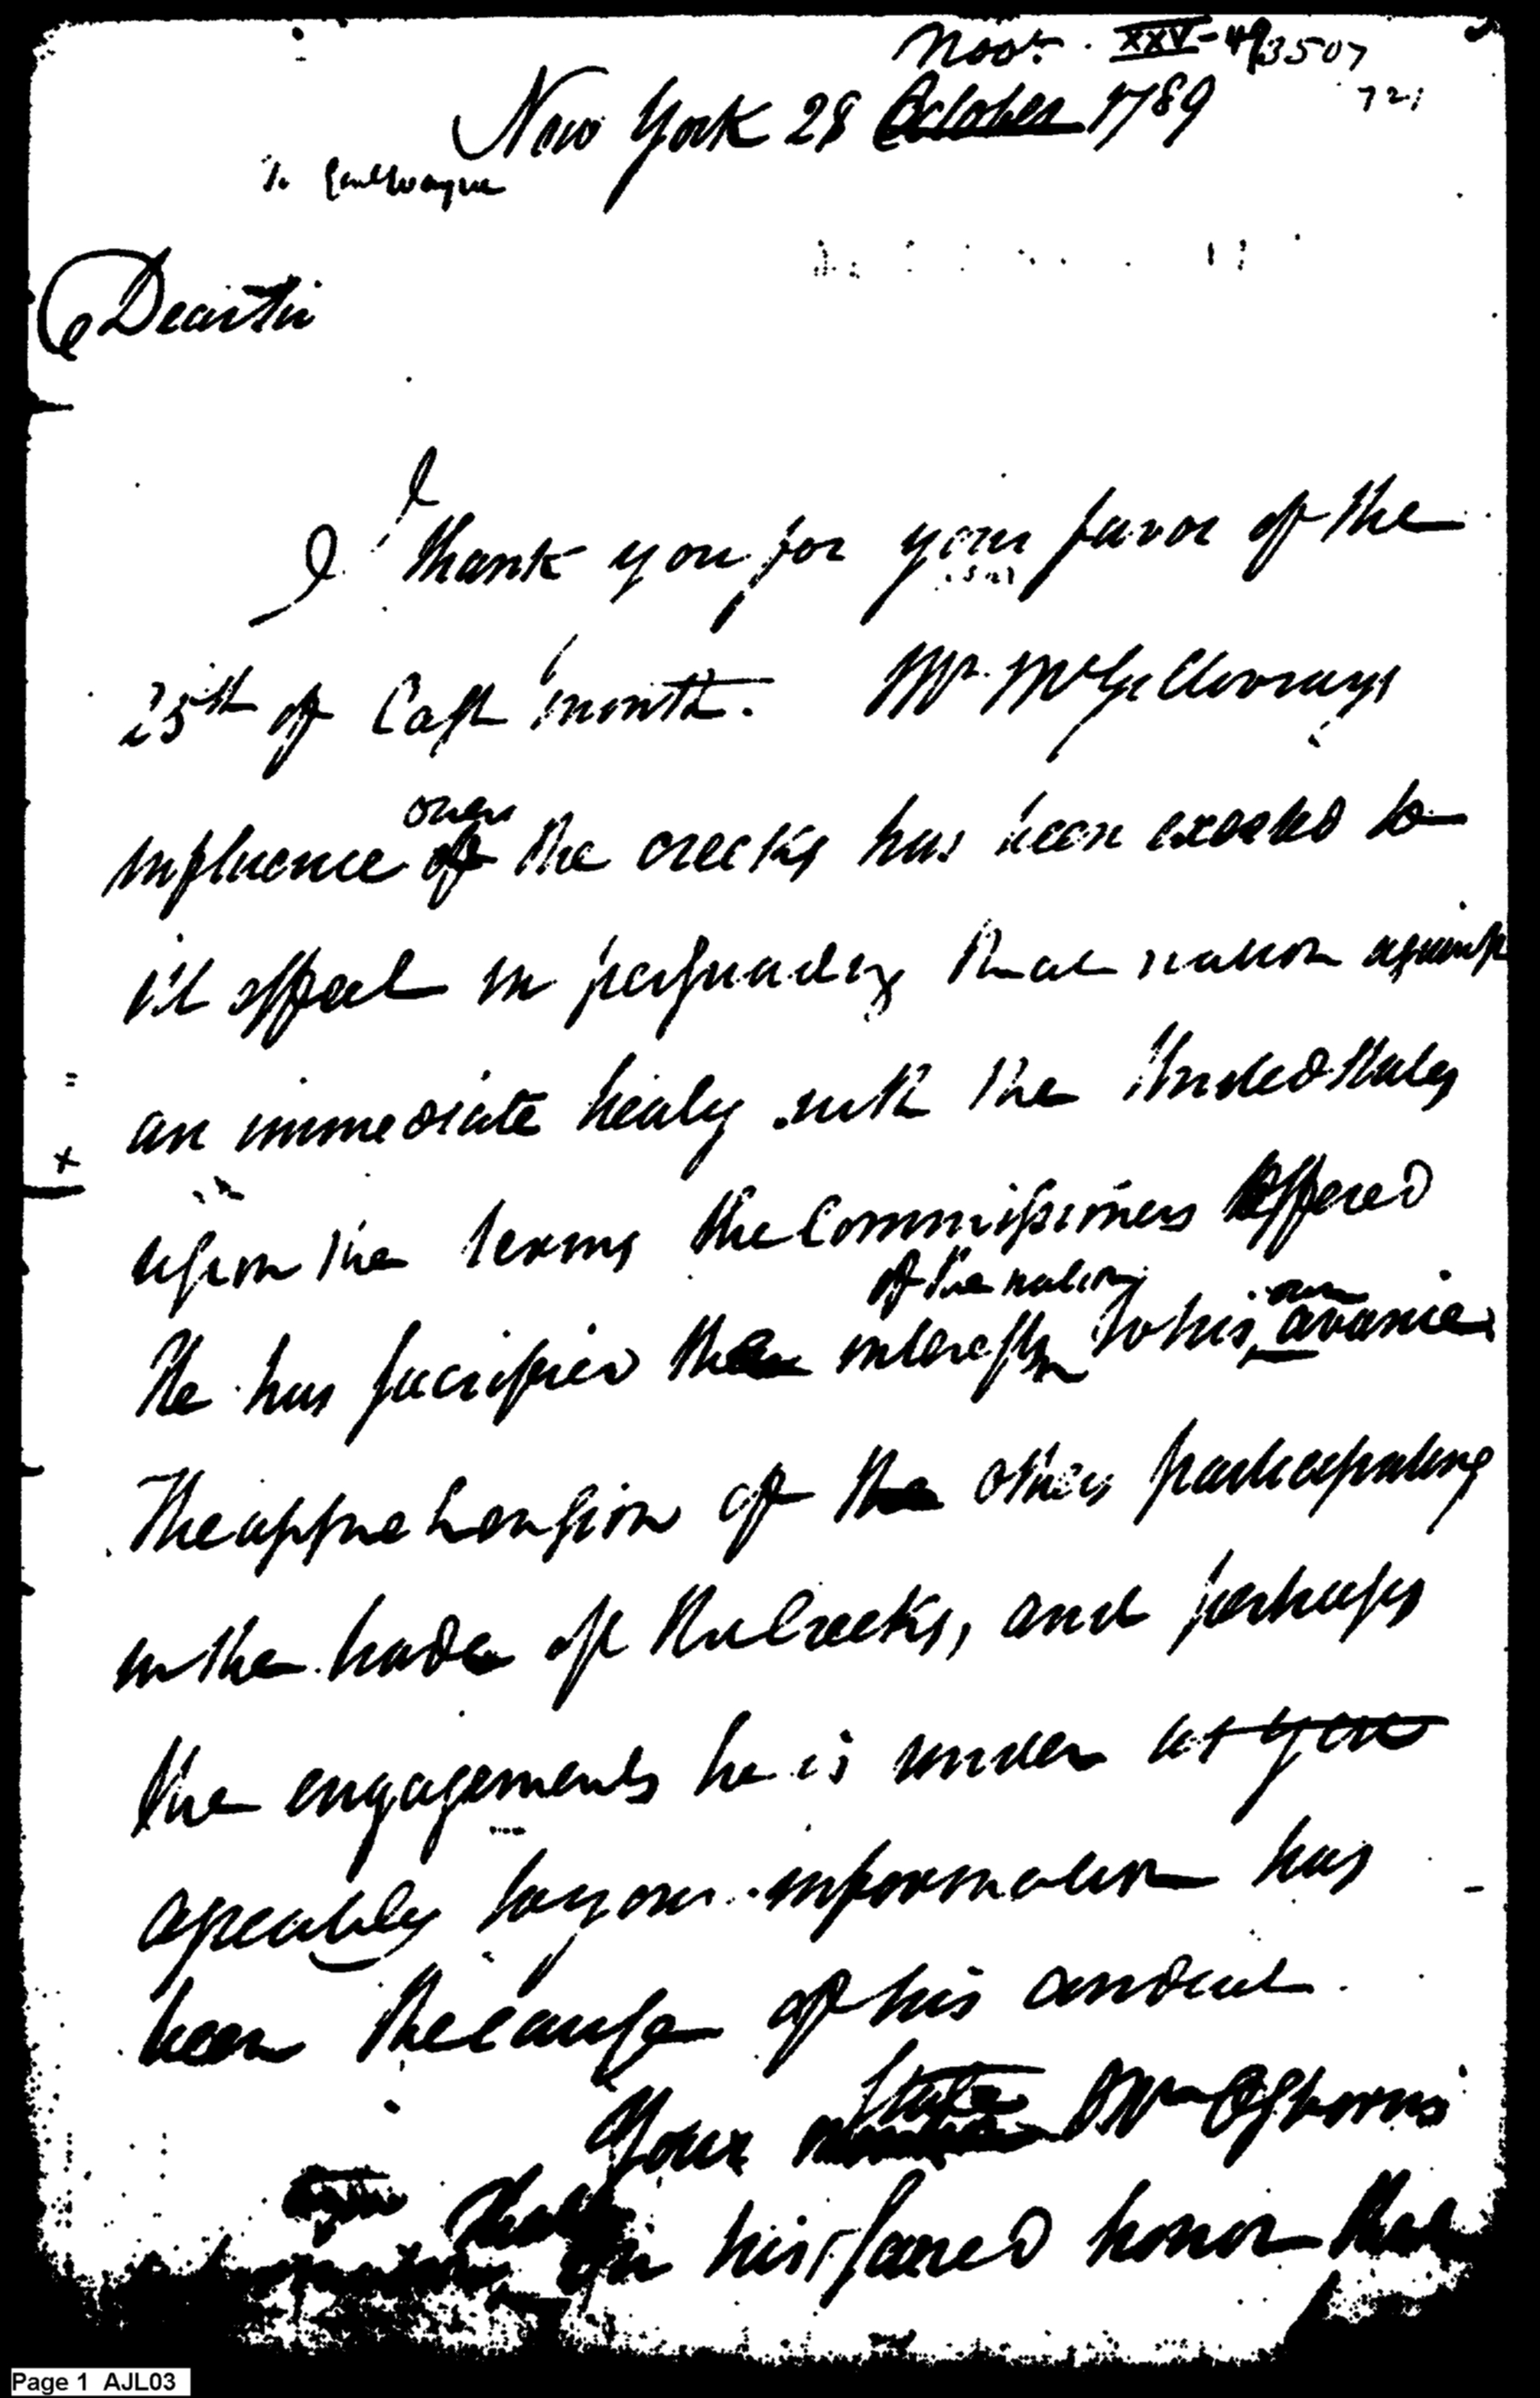 Novr. XXV-49 3507
721
New York 28 October 1789
To Genl Wayne
Dear Sir
I thank you for your favor of the
25th of last month. Mr McGillivrays
over
influence of the creeks has been exerted to
ill effect in persuading that nation against
an immediate treaty with the United States
upon the terms the Commissioners offered
of the nation own
He has sacrificed the interests to his avarice
The apprehension of the others participating
in the trade of the Creeks, and perhaps
the engagements he is under at you
agreeably to your information has
been the cause of his conduct.
State
Your Mr Osborne
his sacred honor that
Page 1 AJL03